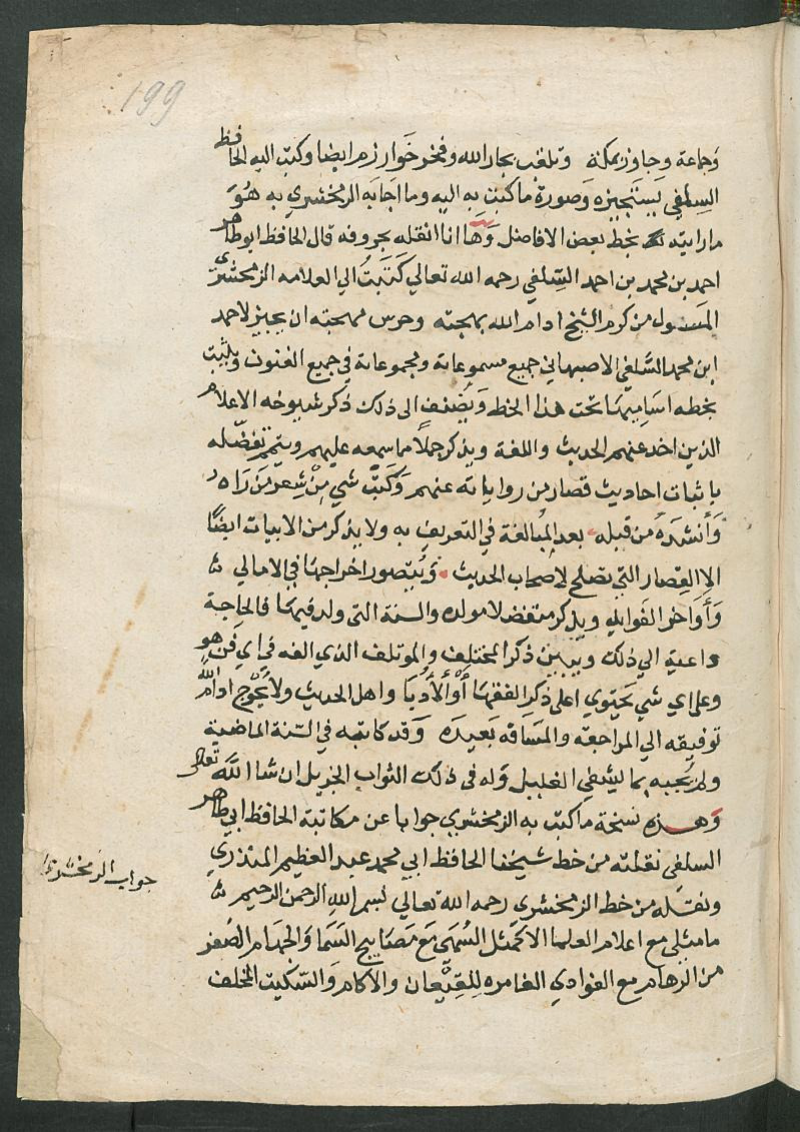 199
وجماعة وجاور بمكة وتلقب بجار الله وفخر خوارزم ايضا وكتب اليه الحافظ
السلفي يستجيزه وصورة ما كتب به اليه وما اجابه الزمخشري به هو
ما رايته بخط بعض الافاضل وها انا انقله بحروفه قال الحافظ ابو طاهر
احمد بن محمد بن احمد السلفي رحمه الله تعالي كتبت الي العلامه الزمخشري
المسئول من كرم الشيخ ادام الله بهجته وحرس مهجته ان يجيز لاحمد
ابن محمد السلفي الاصبهاني جميع مسموعاته ومجموعاته في جميع الفنون ويثبت
بخطه اساميها تحت هذا الخط ويضف الى ذلك ذكر شيوخه الاعلام
الذين اخد عنهم الحديث واللغة ويذكر جملا مما سمعه عليهم ويتمم تفضله
باثبات احاديث قصار من رواياته عنهم وكتب شي من شعر من راه
وأنشده من قبله بعد المبالغة في التعريف به ولا يذكر من الابيات ايضا
الا القصار التي تصلح لاصحاب الحديث ويتصور اخراجها في الامالي
وأواخر الفوايد ويذكر متفضلا مولده والسنة التى ولد فيها فالحاجة
داعية الي ذلك ويبين ذكر المختلف والموتلف الذي الفه في اي فن هو
وعلى اي شي يحتوي اعلى ذكر الفقها أو الأدبا واهل الحديث ولا يحوج ادام الله
توفيقه الي المراجعة والمسافة بعيده وقد كاتبه في السنة الماضية
ولم يجبه بما يشفي الغليل وله في ذلك الثواب الجزيل ان شا الله تعالى
وهذه نسخة ما كتب به الزمخشري جوابا عن مكاتبة الحافظ ابي طاهر
السلفي نقلته من خط شيخنا الحافظ ابي محمد عبد العظيم المنذري
ونقله من خط الزمخشري رحمه الله تعالي بسم الله الرحمن الرحيم
ما مثلي مع اعلام العلما الا كمثل السهى مع مصابيح السما والجهام الصفر
من الرهام مع الغوادي الغامره للقيعان والاكام والسكيت المخلف
جواب الزمخشري